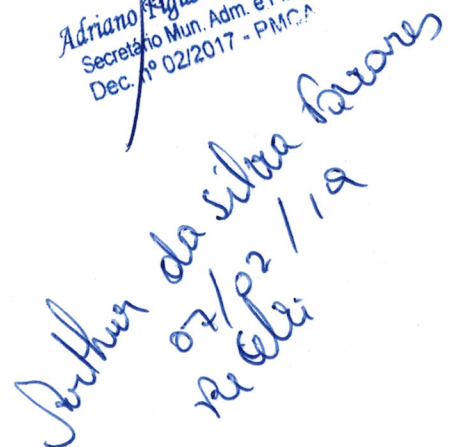 Adriano
Secretário Mun. Adm. e
Dec. nº 02/2017 - PMCA
Arthur da Silva Tavares
07/02/19
Recebi